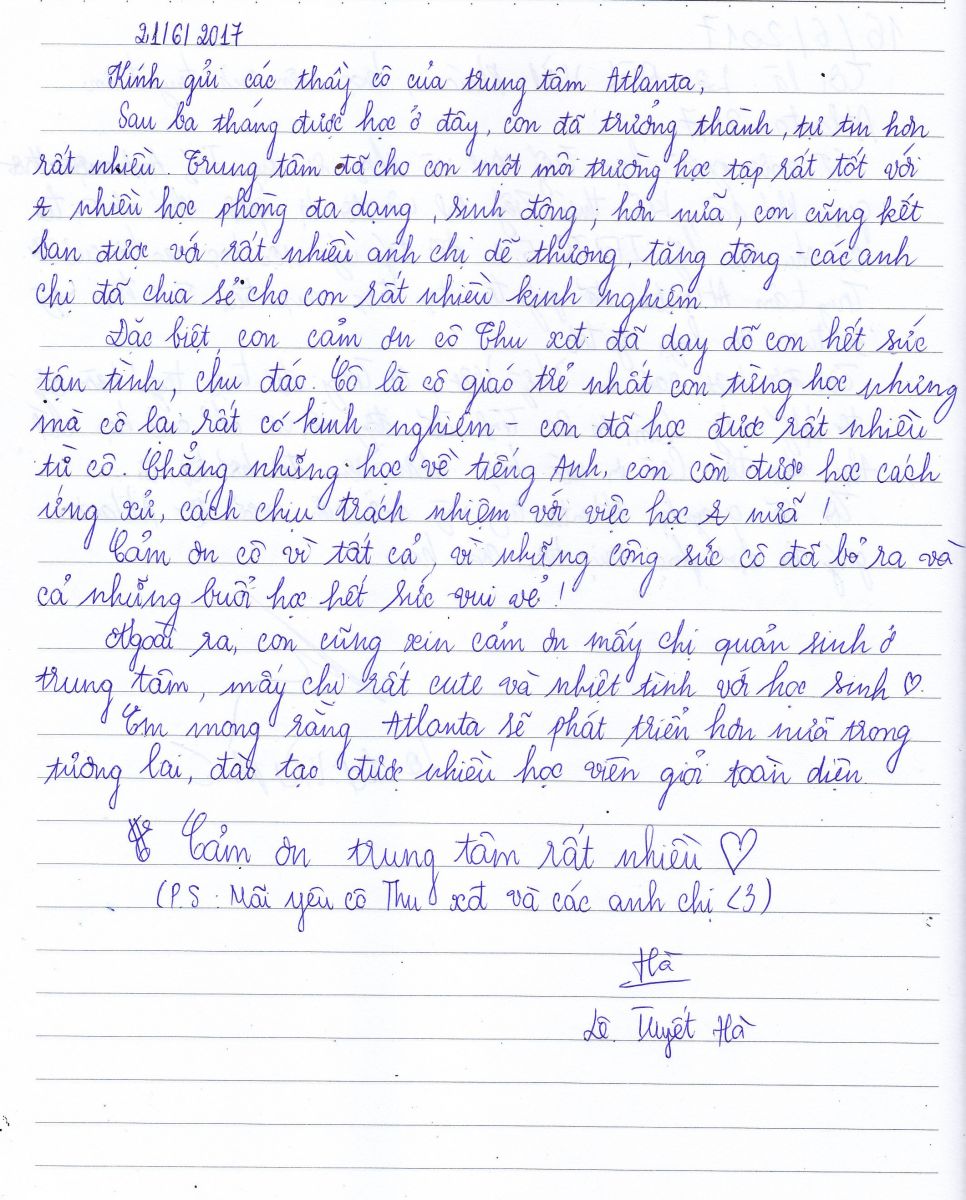 21/6/2017
Kính gửi các thầy cô của trung tâm Atlanta,
Sau ba tháng được học ở đây, con đã trưởng thành, tự tin hơn
rất nhiều. Trung tâm đã cho con một môi trường học tập rất tốt với
nhiều học phòng đa dạng, sinh động; hơn nữa, con cũng kết
bạn được với rất nhiều anh chị dễ thương, tăng động - các anh
chị đã chia sẻ cho con rất nhiều kinh nghiệm.
Đặc biệt, con cảm ơn cô Thu xđ đã dạy dỗ con hết sức
tận tình, chu đáo. Cô là cô giáo trẻ nhất con từng học nhưng
mà cô lại rất có kinh nghiệm - con đã học được rất nhiều
từ cô. Chẳng những học về tiếng Anh, con còn được học cách
ứng xử, cách chịu trách nhiệm với việc học nữa!
Cảm ơn cô vì tất cả, vì những công sức cô đã bỏ ra và
cả những buổi học hết sức vui vẻ!
Ngoài ra, con cũng xin cảm ơn mấy chị quản sinh ở
trung tâm, mấy chị rất cute và nhiệt tình với học sinh ♡.
Em mong rằng Atlanta sẽ phát triển hơn nữa trong
tương lai, đào tạo được nhiều học viên giỏi toàn diện.
Cảm ơn trung tâm rất nhiều ♡
(P.S: Mãi yêu cô Thu xđ và các anh chị <3)
Hà
Lê Tuyết Hà